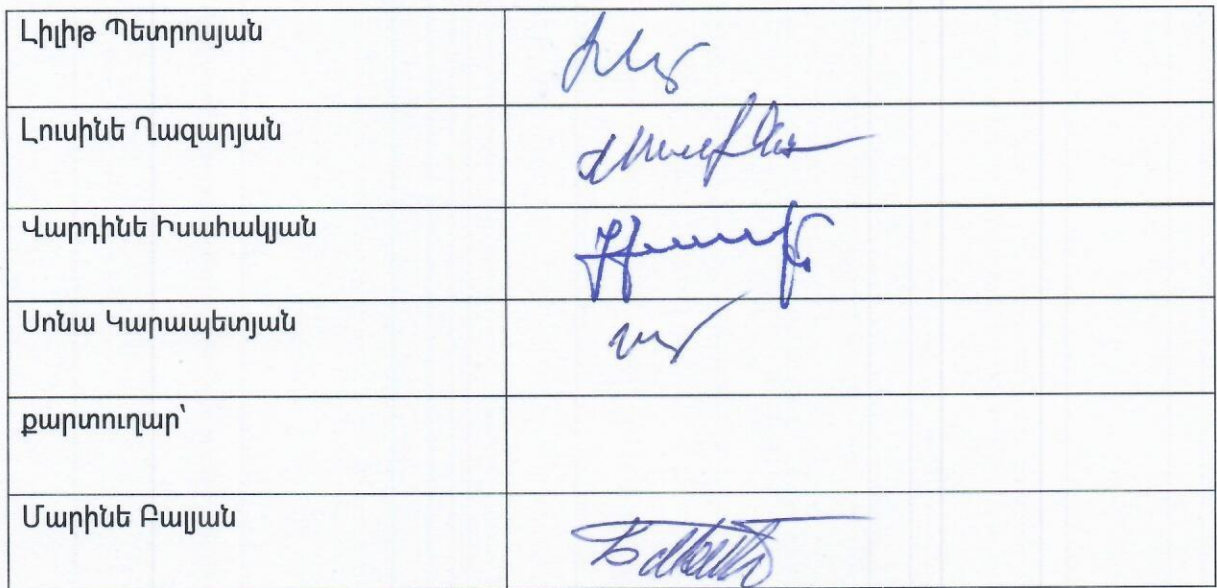 Լիլիթ Պետրոսյան
Լուսինե Ղազարյան
Վարդինե Իսահակյան
Սոնա Կարապետյան
քարտուղար՝
Մարինե Բալյան